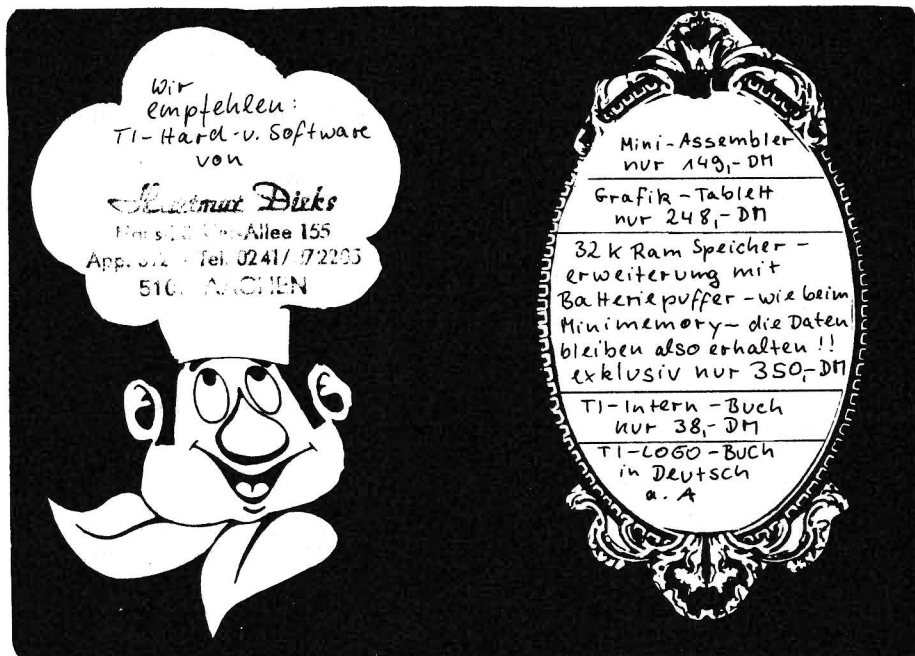 Wir
empfehlen:
TI-Hard-u. Software
von
Dirks
-Allee 155
App. Tel. 0241/
AACHEN
Mini-Assembler
nur 149,- DM
Grafik-Tablett
nur 248,- DM
32 K Ram Speicher-
erweiterung mit
Batteriepuffer - wie beim
Minimemory - die Daten
bleiben also erhalten !!
exklusiv nur 350,- DM
TI-Intern-Buch
nur 38,- DM
TI-LOGO-Buch
in Deutsch
a. A